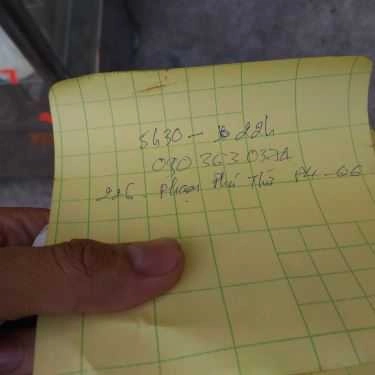 5h30 - 22h
090 363 0372
226 Phạm Phú Thứ P4-Q6